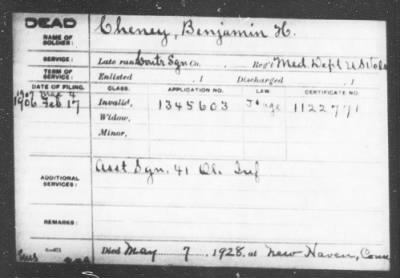 DEAD
NAME OF SOLDIER: Cheney, Benjamin H.
SERVICE: Late rank Contr Sgn Co. , Reg't Med Dept U S Vols
TERM OF SERVICE: Enlisted , 1 Discharged , 1
DATE OF FILING. CLASS. APPLICATION NO. LAW. CERTIFICATE NO.
1907 Mar 4
1906 Feb 17 Invalid, 1345603 1122771
Widow,
Minor,
ADDITIONAL SERVICES: Asst Sgn. 41 Oh. Inf
REMARKS:
Died May 7, 1928, at New Haven, Conn